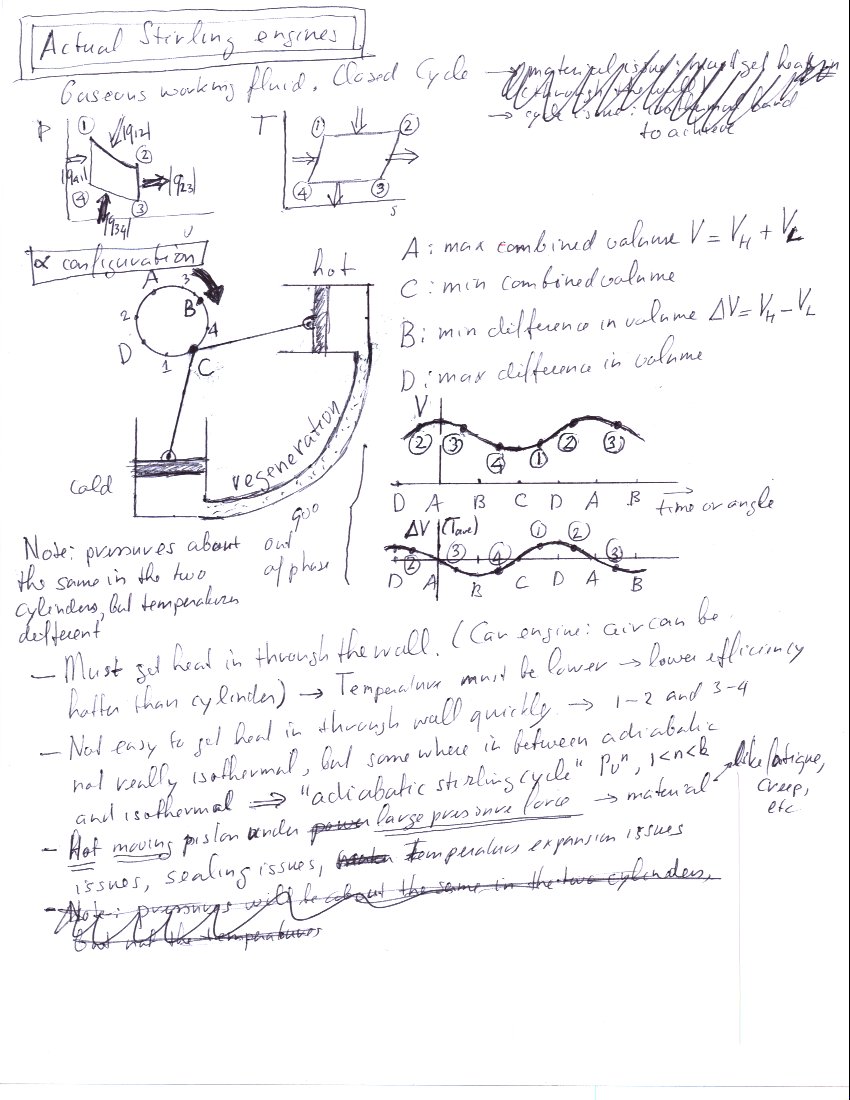 Actual Stirling engines
Gaseous working fluid. Closed Cycle
→ material issue: must get heat in
through the wall
→ cycle issue:
to achieve
P
1
|q12|
2
|q41|
4
|q23|
3
|q34|
v
T
1
2
4
3
s
α configuration
hot
A
3
B
2
4
D
1
C
cold
regeneration
A: max combined volume V = VH + VL
C: min combined volume
B: min difference in volume ΔV = VH - VL
D: max difference in volume
V
2 3 4 1 2 3
D A B C D A B
time or angle
ΔV (Tave)
2 3 4 1 2 3
D A B C D A B
90°
out
of phase
Note: pressures about
the same in the two
cylinders, but temperatures
different
— Must get heat in through the wall. (Car engine: air can be
hotter than cylinder) → Temperature must be lower → lower efficiency
— Not easy to get heat in through wall quickly → 1-2 and 3-4
not really isothermal, but somewhere in between adiabatic
and isothermal ⇒ "adiabatic stirling cycle" Pvⁿ, 1<n<k
- Hot moving piston under power large pressure force → material
like fatigue,
creep,
etc
issues, sealing issues, temperature expansion issues
- Note: pressures will be about the same in the two cylinders,
but not the temperatures